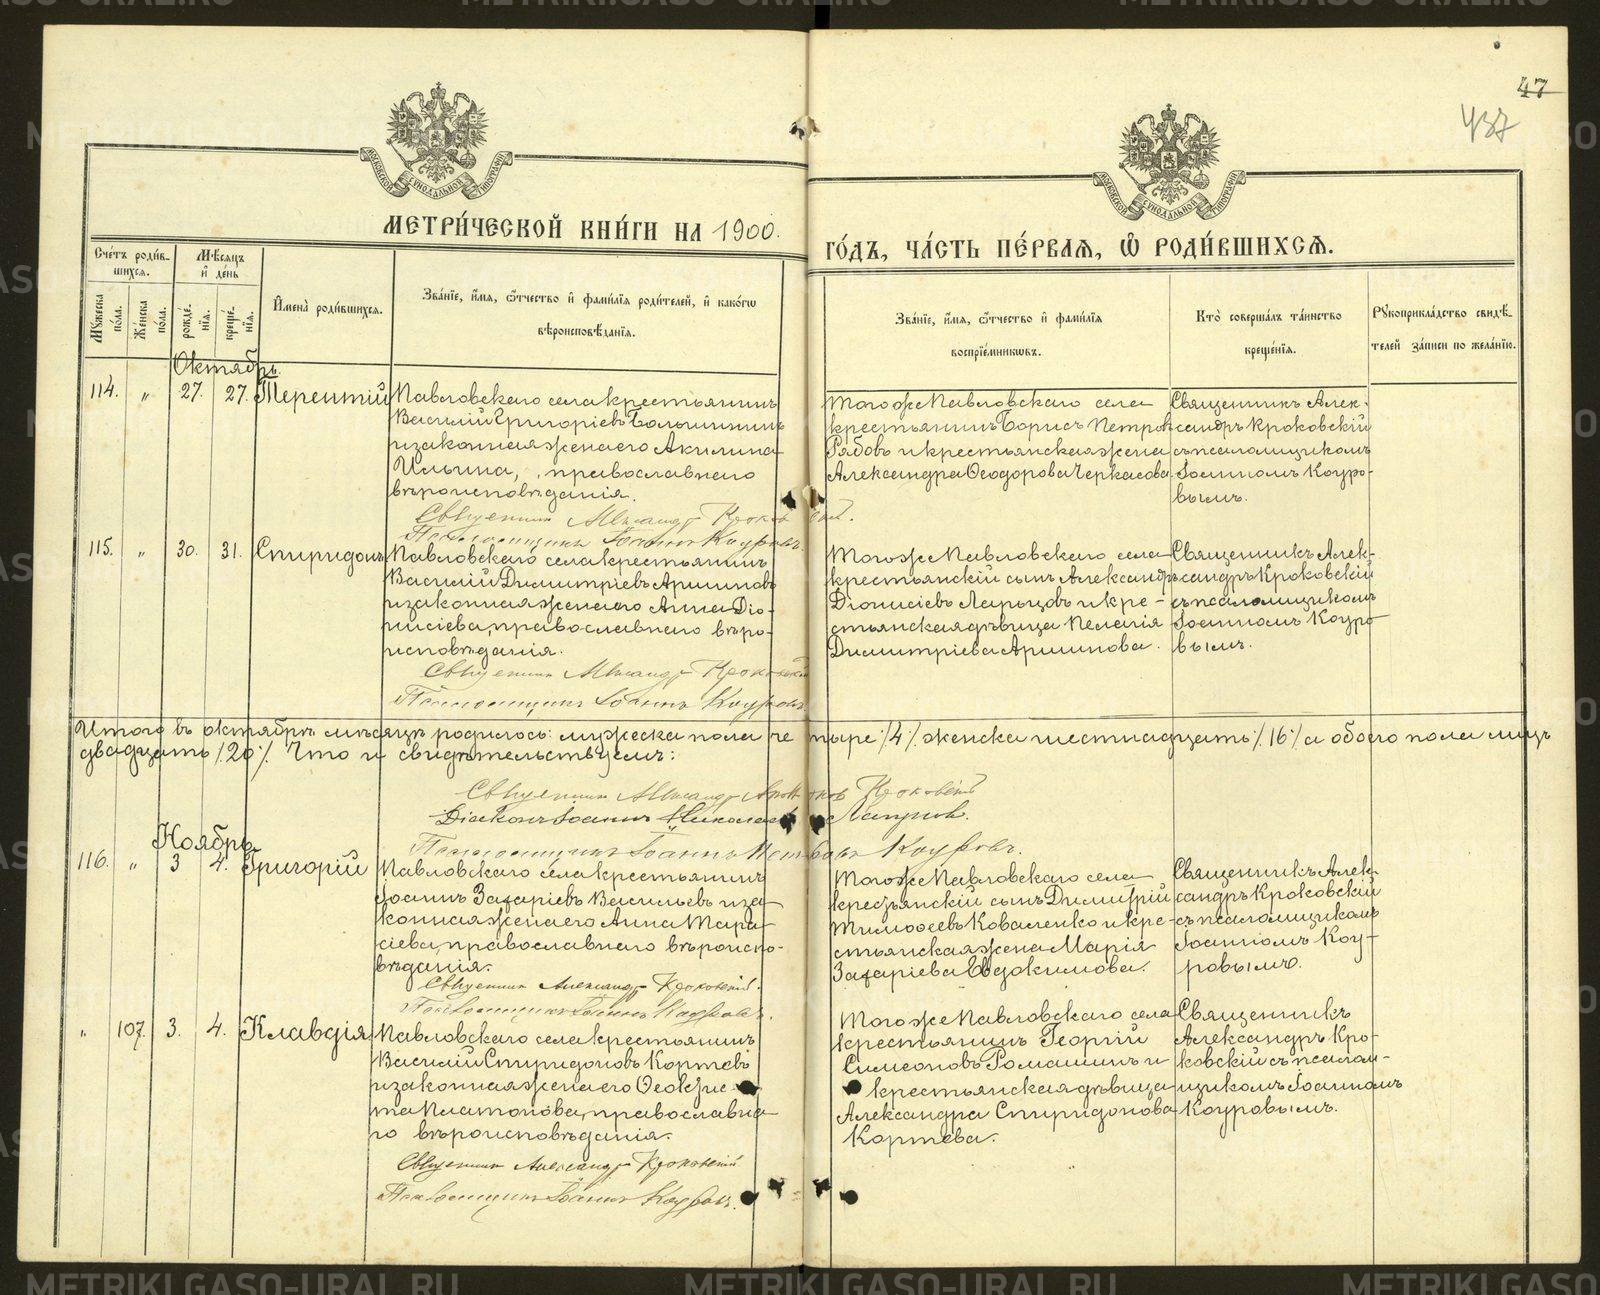 47
437
МОСКОВСКОЙ СѴНОДАЛЬНОЙ ТИПОГРАФІИ
МОСКОВСКОЙ СѴНОДАЛЬНОЙ ТИПОГРАФІИ
МЕТРИ́ЧЕСКОЙ КНИ́ГИ НА 1900.
ГО́ДЪ, ЧА́СТЬ ПЕ́РВАѦ, Ѽ РОДИ́ВШИХСѦ.
Сче́тъ роди́в-
шихсѧ.
Мѣ́сѧцъ
и҆ де́нь
Мꙋ́жеска
по́ла.
Же́нска
по́ла.
рожде́-
нїѧ.
креще́-
нїѧ.
И҆мена̀ роди́вшихсѧ.
Зва́нїе, и҆́мѧ, ѻ҆́тчество и҆ фами́лїѧ роди́телей, и҆ како́гѡ
вѣроисповѣ́данїѧ.
Зва́нїе, и҆́мѧ, ѻ҆́тчество и҆ фами́лїѧ
воспрїе́мникѡвъ.
Кто̀ соверша́лъ та́инство
креще́нїѧ.
Рꙋкоприкла́дство свидѣ́-
телей за́писи по жела́нїю.
Октябрь.
114. „ 27. 27. Терентій
Павловскаго села крестьянинъ
Василій Григоріевъ Болышинъ
и законная жена его Акилина
Ильина, православнаго
вѣроисповѣданія.
Священникъ Александръ Кроковскій.
Псаломщикъ Іоаннъ Коуровъ.
Тогоже Павловскаго села
крестьянинъ Борисъ Петровъ
Рябовъ и крестьянская жена
Александра Ѳеодорова Черкасова
Священникъ Алек-
сандръ Кроковскій
съ псаломщикомъ
Іоанномъ Коуро-
вымъ.
115. „ 30. 31. Спиридонъ
Павловскаго села крестьянинъ
Василій Димитріевъ Аршиновъ
и законная жена его Анна Діо-
нисіева, православнаго вѣро-
исповѣданія.
Священникъ Александръ Кроковскій
Псаломщикъ Іоаннъ Коуровъ
Тогоже Павловскаго села
крестьянскій сынъ Александръ
Діонисіевъ Ларьцовъ и кре-
стьянская дѣвица Пелагія
Димитріева Аршинова.
Священникъ Алек-
сандръ Кроковскій
съ псаломщикомъ
Іоанномъ Коуро-
вымъ.
Итого въ октябрѣ мѣсяцѣ родилось: мужеска пола четыре /4/ женска шестнадцать /16/ а обоего пола лицъ
двадцать /20/. Что и свидѣтельствуемъ:
Священникъ Александръ Кроковскій
Діаконъ Іоаннъ Николаевъ Лапинъ.
Псаломщикъ Іоаннъ Петровъ Коуровъ.
Ноябрь
116. „ 3 4. Григорій
Павловскаго села крестьянинъ
Іоаннъ Захаріевъ Васильевъ и за-
конная жена его Анна Тара-
сіева, православнаго вѣроиспо-
вѣданія.
Священникъ Александръ Кроковскій.
Псаломщикъ Іоаннъ Коуровъ.
Тогоже Павловскаго села
крестьянскій сынъ Димитрій
Тимоѳеевъ Коваленко и кре-
стьянская жена Марія
Захаріева Евдокимова.
Священникъ Алек-
сандръ Кроковскій
съ псаломщикомъ
Іоанномъ Коу-
ровымъ.
„ 107. 3. 4. Клавдія
Павловскаго села крестьянинъ
Василій Спиридоновъ Кортевъ
и законная жена его Ѳеокти-
ста Платонова, православна-
го вѣроисповѣданія.
Священникъ Александръ Кроковскій
Псаломщикъ Іоаннъ Коуровъ.
Тогоже Павловскаго села
крестьянинъ Георгій
Симеоновъ Ромашинъ и
крестьянская дѣвица
Александра Спиридонова
Кортева.
Священникъ
Александръ Кро-
ковскій съ псалом-
щикомъ Іоанномъ
Коуровымъ.
METRIKI.GASO-URAL.RU